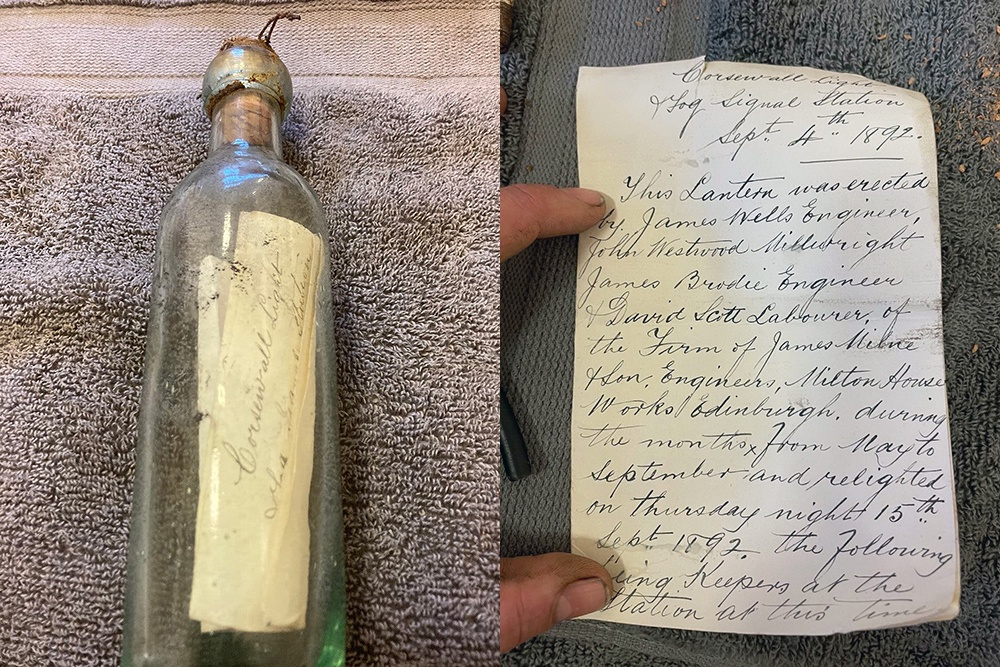 Corsewall Light
Corsewall Light
& Fog Signal Station
Sept. 4th 1892.
This Lantern was erected
by James Wells Engineer,
John Westwood Millwright
James Brodie Engineer
& David Scott Labourer, of
the Firm of James Milne
& Son, Engineers, Milton House
Works Edinburgh. during
the months from May to
September and relighted
on thursday night 15th
Sept 1892. the following
Keepers at the
Station at this time